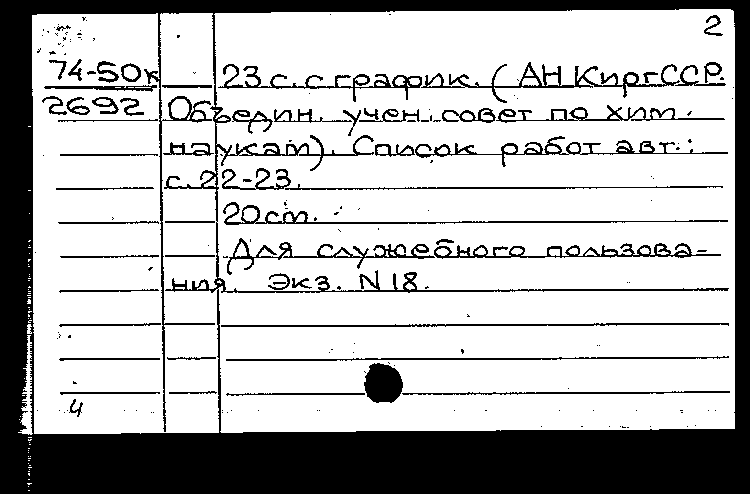 2
74-50к 23 с. с график. (АН КиргССР.
2692 Объедин. учен. совет по хим.
наукам). Список работ авт.:
с. 22-23.
20 ст.
Для служебного пользова-
ния. Экз. N 18.
4